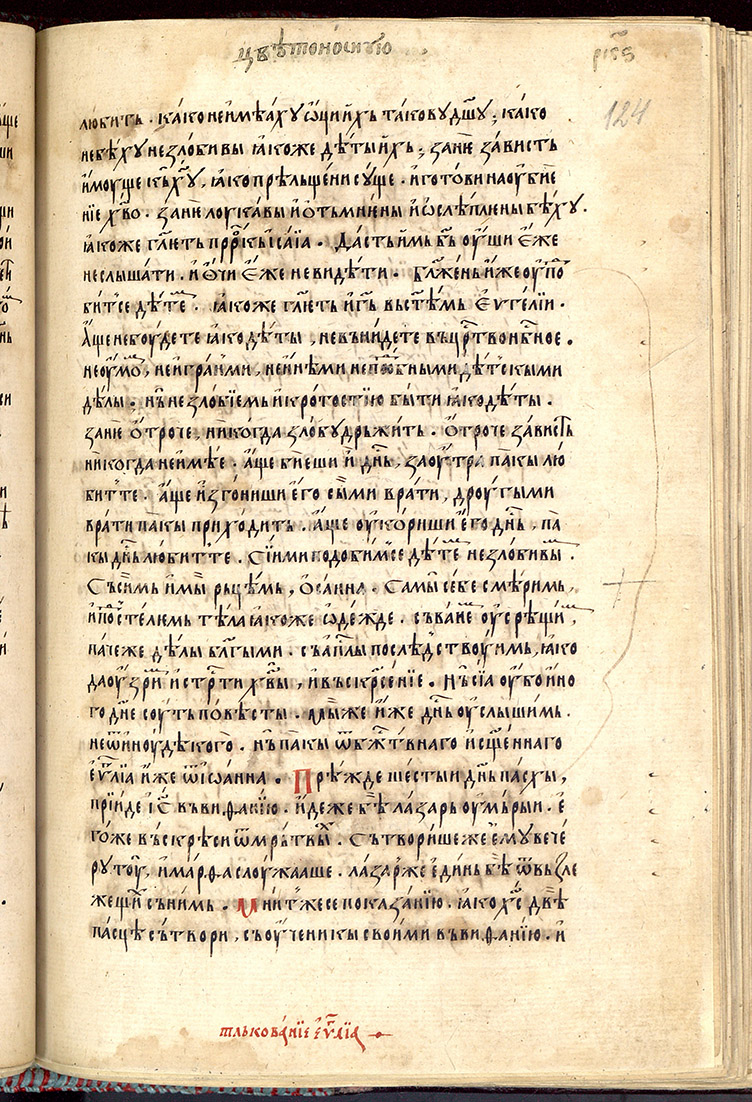 цвѣтоноснꙋю
124
любить · како не имѣахꙋ ѿци ихъ таковꙋ дш҃ꙋ ; како
не бѣхꙋ незлобивы ꙗкоже дѣты ихъ ; занѥ зависть
имоуще къ хꙋ҃ , ꙗко прѣльщени сꙋще · и готови на оубїе
нїе хв҃о · занѥ лоукавы и отьмнѥны и ѡслѣплены бѣхꙋ .
ꙗкоже гл҃ѥть пррⷪ҇кь исаїа · Дасть имь бъ҃ оуши еже
не слышати · и ѻчи еже не видѣти · бл҃жень иже оупⷪо
бит се дѣтеⷨ · ꙗкоже гл҃ѥть и гь҃ вь ст҃ѣмь еѵⷢ҇гелїи ·
Аще не боудете ꙗко дѣты , не вьнидете въ црⷭ҇тво нбⷭ҇ное .
не оумоⷨ , ни играними , ни инѣми неподⷪ҇бными дѣтскыми
дѣлы · нь незлобїемь и кротостїю быти ꙗко дѣты ·
занѥ отроче , никогда злобꙋ дрьжить · отроче зависть
никогда не имѣе · аще бїеши и дн҃ь , заоутра пакы лю
бит те · аще изгониши его сыми врати , дроугыми
врати пакы приходить · аще оукориши его дн҃ь , па
кы дн҃ь любит те . Сїими подобим се дѣтеⷨ незлобивыⷨ .
Сь сими и мы рьцѣмь , ѻсанна · Сами себе смѣримь ,
и постелѥмь тѣла ꙗкоже ѡдежде · сь ваиеⷨ оусрѣщиⷨ ,
паче же дѣлы блг҃ыми · сь апⷭ҇лы послѣдствоуимь , ꙗко
да оузриⷨ и стрⷭ҇ти хв҃ы , и вьскрⷭ҇сенїе · Нь сїа оубо ино
го дн҃е соуть повѣсты · мыже иже дн҃ь оуслышимь .
не ѿ иноудѣкого · нь пакы ѿ бжⷭ҇твнаго и сщ҃еннаго
еѵⷢ҇лїа иже ѿ іѡанна · Прѣжде шестыи дн҃ь пасхы ,
прїиде іс҃ вь виѳанїю · идеже бѣ лазарь оумрыи · е
гоже вьскрѣси ѿ мрьтвыⷯ · Сътворише же емꙋ вече
рꙋ тоу , и марѳа слоужааше · лазар же единь бѣ ѿ вьзле
жещиⷯ сь нимь · Мнит же се показанїю · ꙗко хс҃ двѣ
пасцѣ сътвори , сь оученикы своими вь виѳанїю · и
тлькованїе еѵⷢ҇лїа